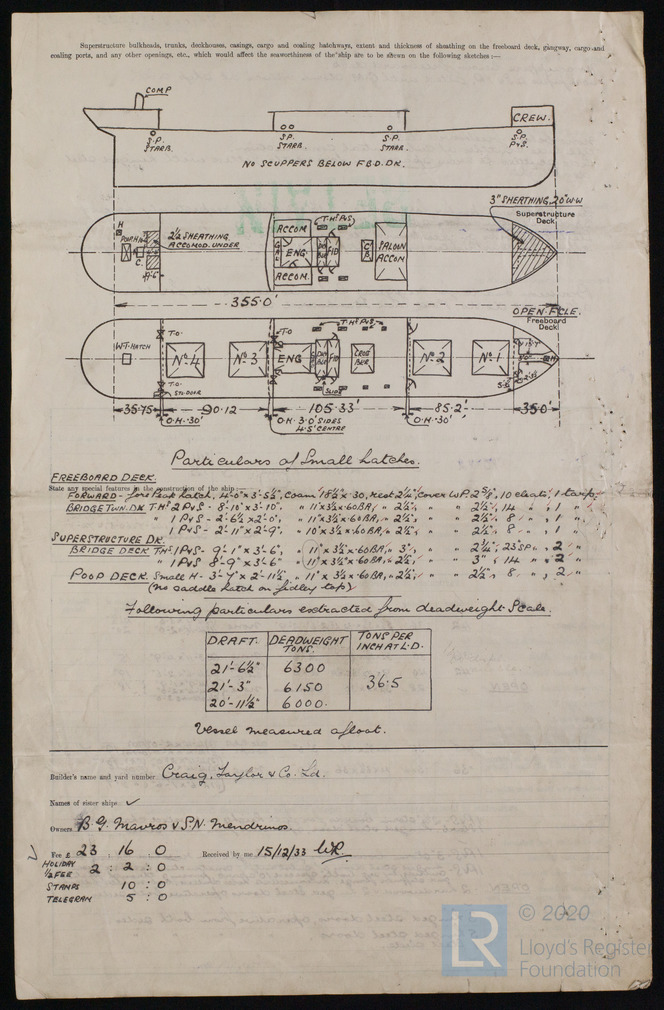 Superstructure bulkheads, trunks, deckhouses, casings, cargo and coaling hatchways, extent and thickness of sheathing on the freeboard deck, gangway, cargo and
coaling ports, and any other openings, etc., which would affect the seaworthiness of the ship are to be shewn on the following sketches :—
COMP
CREW.
S.P. STARB.
S.P. STARB.
S.P. STARB.
S.P. P&S.
NO SCUPPERS BELOW FBD. DK.
3" SHEATHING, 20" WW
Superstructure Deck
H
2½ SHEATHING.
ACCOMOD. UNDER
C.
ACCOM
ENG
ACCOM.
T.Hs P&S
FID
SALOON ACCOM
355.0'
OPEN FCLE.
Freeboard Deck
W.T. HATCH
T.O.
T.O.
No-4
No-3
T.O
ENG
FID
T.Hs P&S
No-2
No-1
35.75
90.12
105.33'
85.2'
35.0'
O.H. 30'
O.H. 3.0' SIDES
4.5' CENTRE
O.H. 30'
Particulars of Small Hatches.
FREEBOARD DECK.
State any special features in the construction of the ship :—
FORWARD - fore Peak hatch, 4'-0" x 3'-5½", Coam 18½" x 30, rest 2¼", cover W.P. 2⅝", 10 cleats, 1 tarp.
BRIDGE TWN. DK T.Hs 2 P&S - 8'-10" x 3'-10". " 11" x 3½ x 60 BA, " 2½", " " 2½", 14 " , 1 "
" 1 P&S - 2'-6½" x 2'-0", " 11" x 3½ x 60 BA, " 2½", " " 2½", 8 " , 1 "
" 1 P&S - 2'-11" x 2'-9". " 10" x 3½ x 60 BA, " 2½", " " 2½", 8 " , 1 "
SUPERSTRUCTURE DK.
BRIDGE DECK T.Hs 1 P&S - 9'-1" x 3'-6", " 11" x 3½ x 60 BA, " 3", " " 2¾", 23 SP " , 2 "
" 1 P&S 8'-9" x 3'-6" " 11" x 3½ x 60 BA, " 2½", " " 3" , 14 " , 2 "
POOP DECK. Small H - 3'-7" x 2'-11½", " 11" x 3½ x 60 BA, " 2½", " " 2½", 8 " , 2 "
(no saddle hatch on fidley top)
Following particulars extracted from deadweight Scale.
DRAFT. DEADWEIGHT TONS. TONS PER INCH AT L.D.
21'-6½" 6300
21'-3" 6150 36.5
20'-11½" 6000.
Vessel measured afloat.
Builder's name and yard number Craig, Taylor & Co. Ld.
Names of sister ships ✓
Owners B.G. Mavros & S.N. Mendrinos
Fee £ 23 : 16 : 0 Received by me 15/12/33
HOLIDAY ½ FEE 2 : 2 : 0
STAMPS 10 : 0
TELEGRAM 5 : 0
LR
© 2020
Lloyd's Register
Foundation